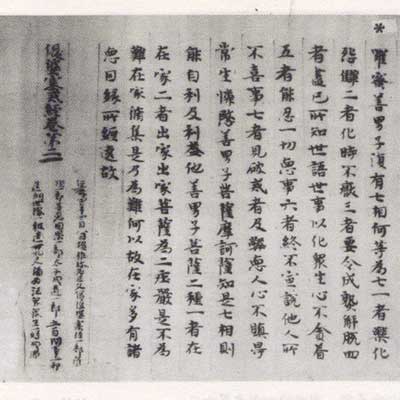 * 羅蜜善男子復有七相何等為七一者樂化
怨讎二者化時不厭三者要令成熟解脫四
者盡已所知世語世事以化眾生心不貪著
五者能忍一切惡事六者終不宣說他人所
不喜事七者見破戒者及弊惡人心不瞋㝵
常生憐愍善男子菩薩摩訶薩知是七相則
能自利及利益他善男子菩薩二種一者在
在家二者出家出家菩薩為二庄嚴是不為
難在家脩集是乃為難何以故在家多有諸
惡因緣所纏遶故
優婆塞戒經卷第二